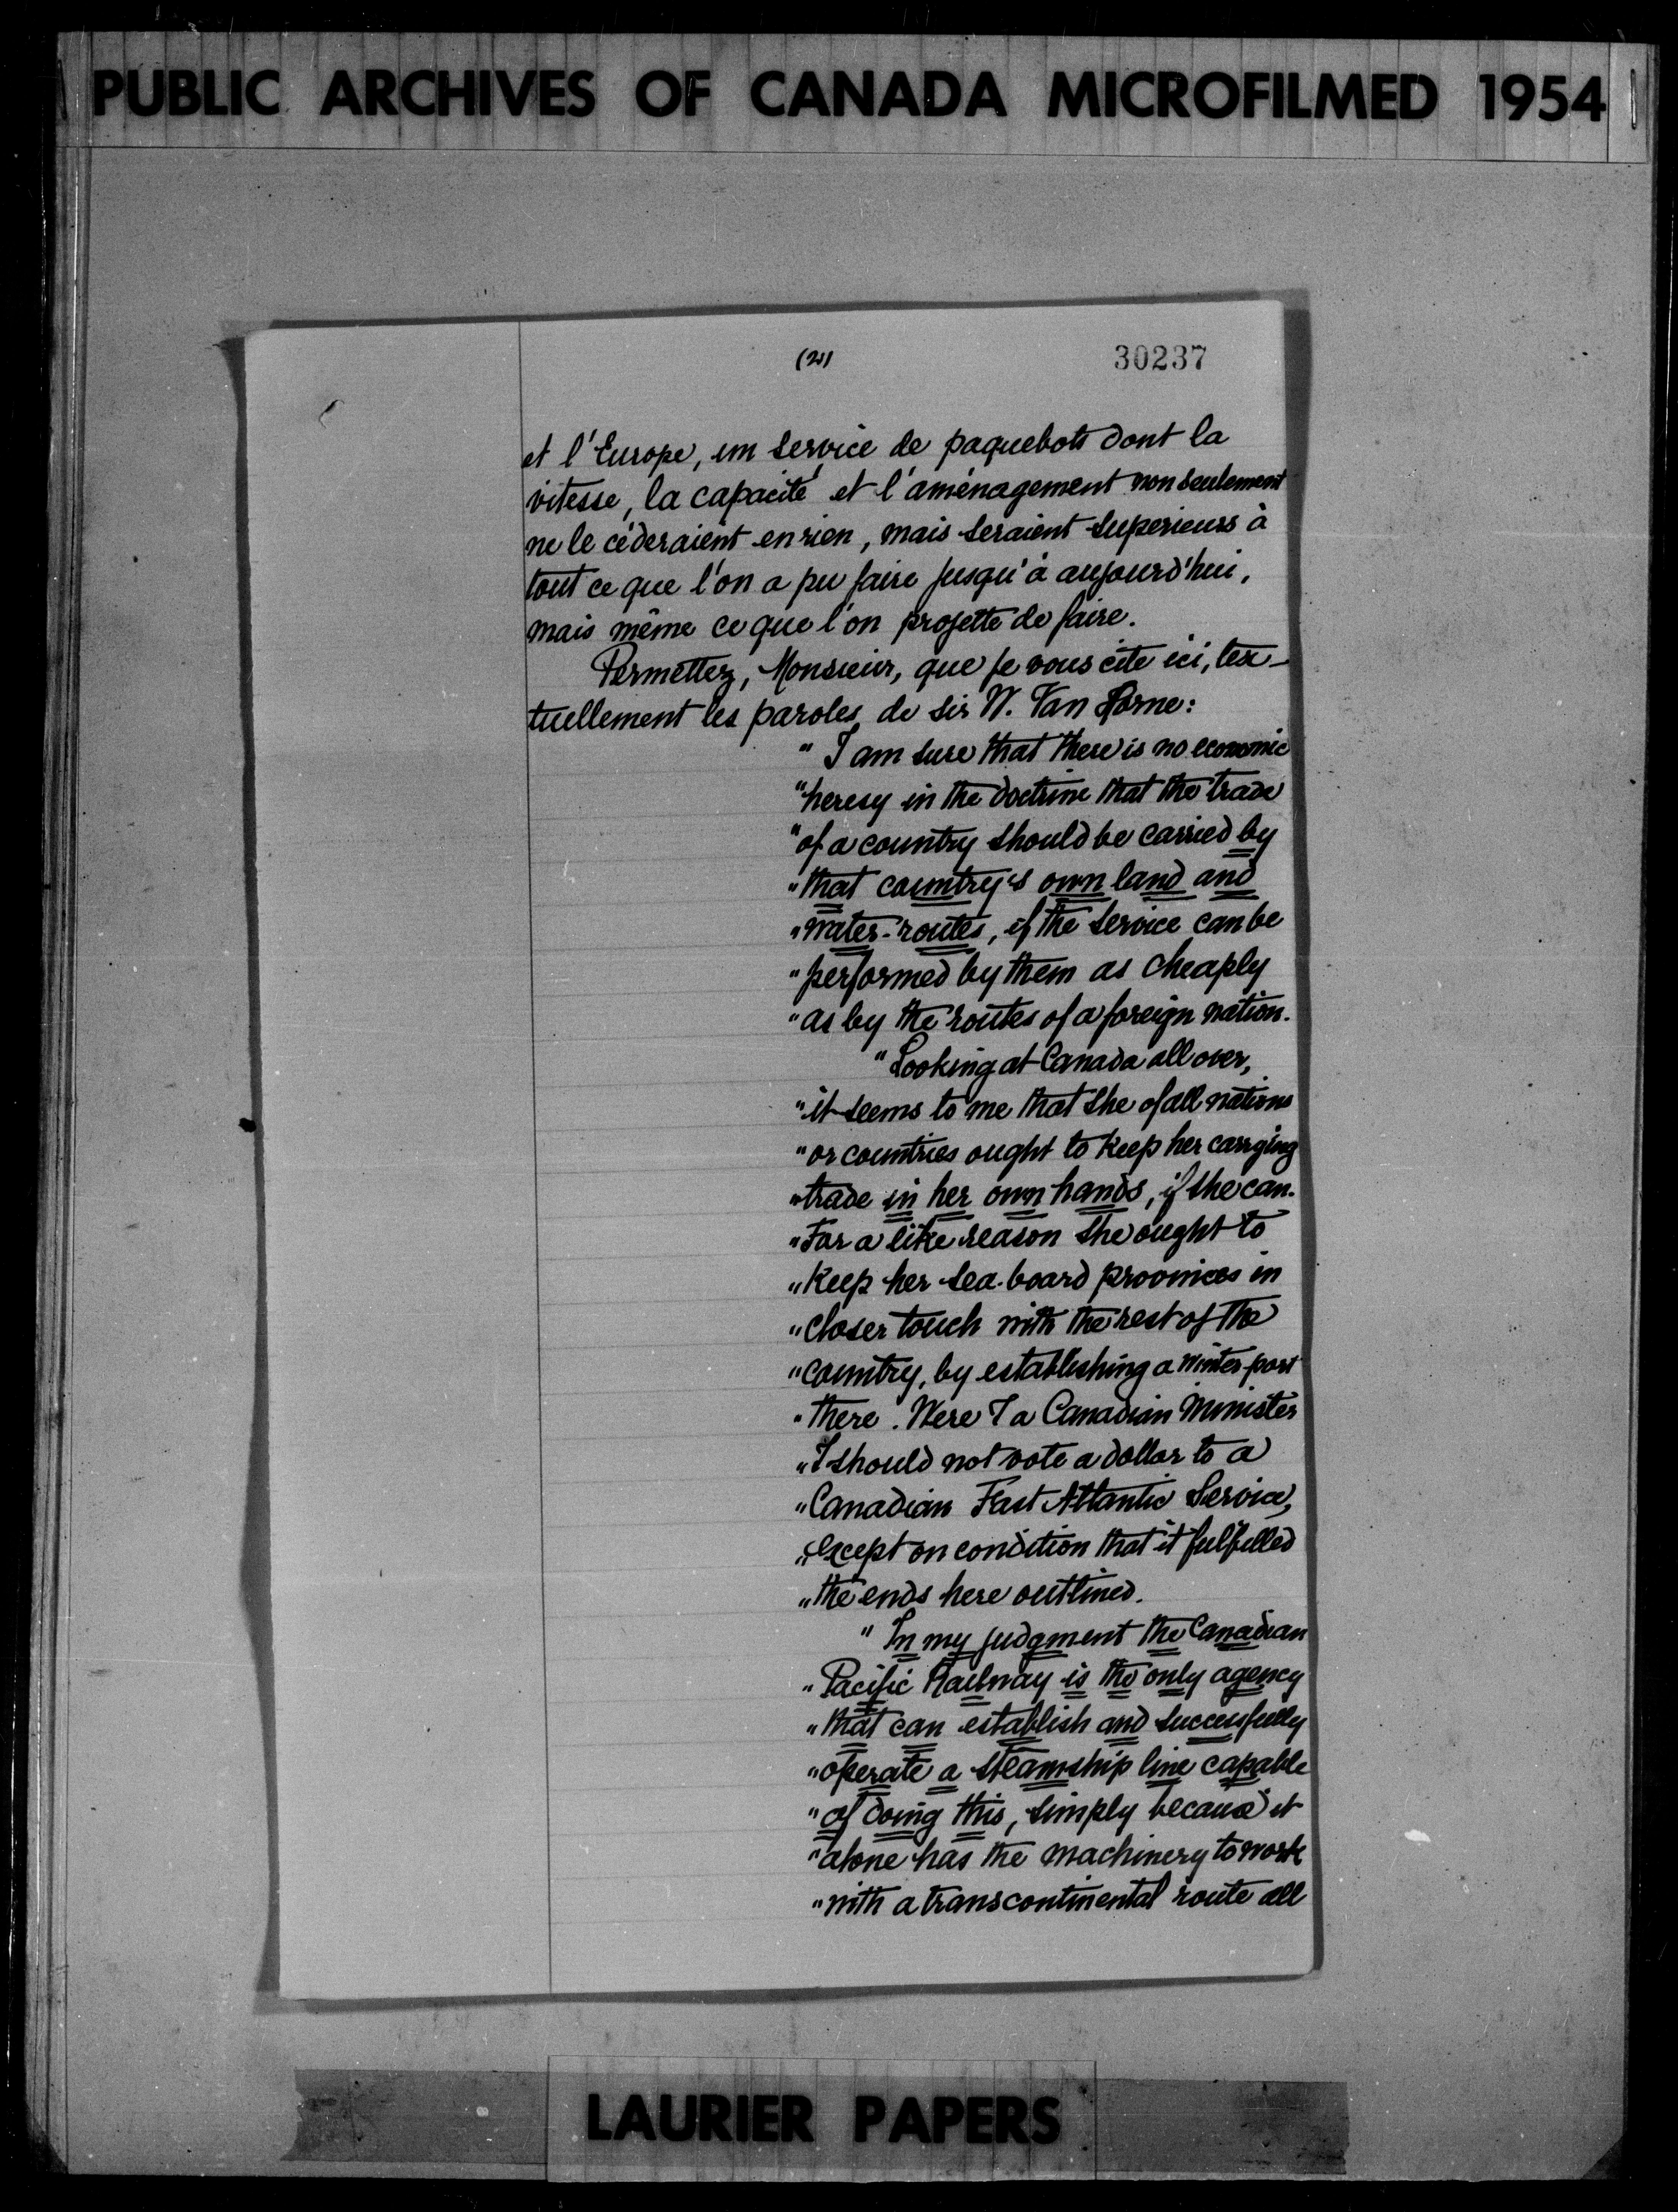 PUBLIC ARCHIVES OF CANADA MICROFILMED 1954
(2)
30237
et l'Europe, un service de paquebots dont la
vitesse, la capacité et l'aménagement non seulement
ne le céderaient en rien, mais seraient supérieurs à
tout ce que l'on a pu faire jusqu'à aujourd'hui,
mais même ce que l'on projette de faire.
Permettez, Monsieur, que je vous cite ici, tex-
tuellement les paroles de sir W. Van Horne:
" I am sure that there is no economic
"heresy in the doctrine that the trade
"of a country should be carried by
"that country's own land and
"water-routes, if the service can be
"performed by them as cheaply
"as by the routes of a foreign nation.
"Looking at Canada all over,
"it seems to me that she of all nations
"or countries ought to keep her carrying
"trade in her own hands, if she can.
"For a like reason she ought to
"keep her sea-board provinces in
"closer touch with the rest of the
"country, by establishing a winter-port
"there. Were I a Canadian Minister
"I should not vote a dollar to a
"Canadian Fast Atlantic Service,
"except on condition that it fulfilled
"the ends here outlined.
" In my judgment the Canadian
"Pacific Railway is the only agency
"that can establish and successfully
"operate a steamship line capable
"of doing this, simply because it
"alone has the machinery to work
"with a transcontinental route all
LAURIER PAPERS